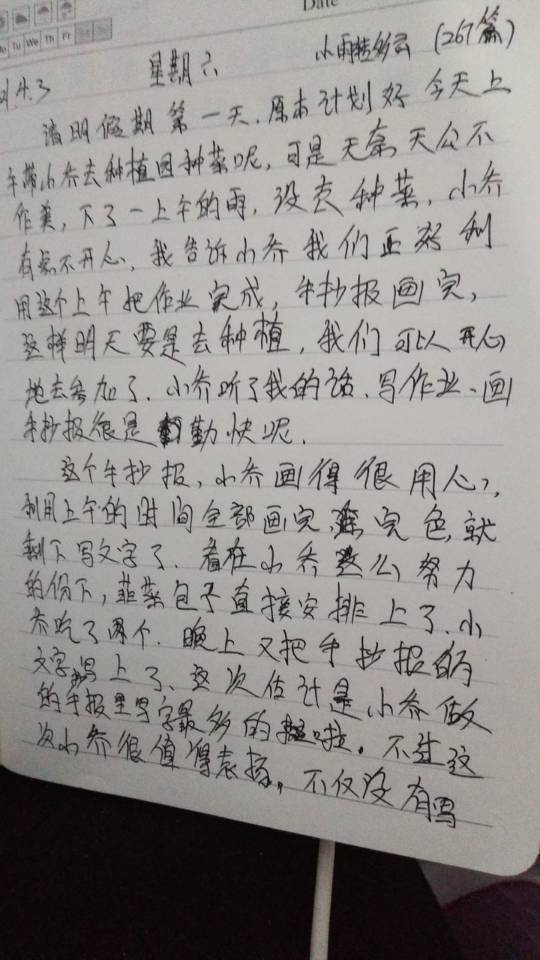 Date
Mo Tu We Th Fr Sa Su
21.4.3 星期六 小雨转多云 (267篇)
清明假期第一天,原本计划好今天上
午带小乔去种植园种菜呢,可是天奈天公不
作美,下了一上午的雨,没去种菜,小乔
有点不开心,我告诉小乔我们正好利
用这个上午把作业完成,手抄报画完,
这样明天要是去种植,我们可以开心
地去参加了.小乔听了我的话,写作业、画
手抄报很是勤快呢.
这个手抄报,小乔画得很用心,
利用上午的时间全部画完,涂完色,就
剩下写文字了.看在小乔这么努力
的份下,韭菜包子直接安排上了.小
乔吃了两个.晚上又把手抄报的
文字写上了、这次估计是小乔做
的手报里写字最多的啦。不过这
次小乔很值得表扬。不仅没有写